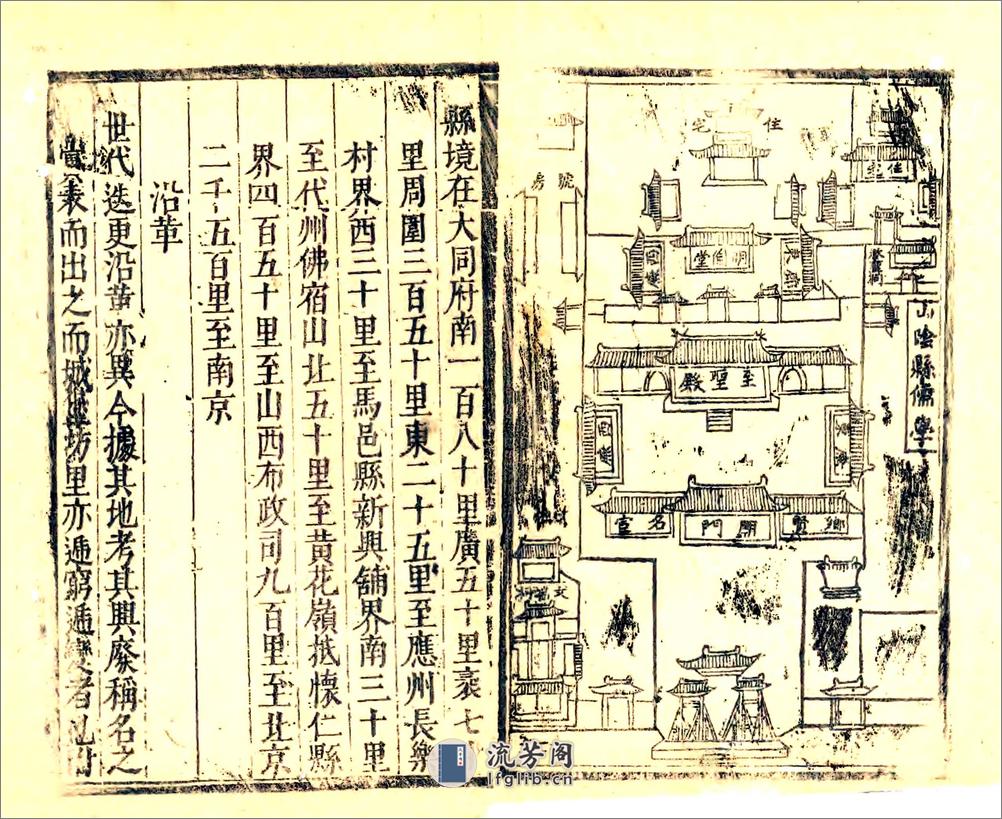 山陰縣儒學
住宅
住宅
號房
明倫堂
至聖殿
鄉賢
門
名宦
縣境在大同府南一百八十里廣五十里袤七
里周圍三百五十里東二十五里至應州長樂
村界西三十里至馬邑縣新興舖界南三十里
至代州佛宿山北五十里至黃花嶺抵懷仁縣
界四百五十里至山西布政司九百里至北京
二千五百里至南京
沿革
世代迭更沿革亦異今據其地考其興廢稱名之
義而出之而城坊里亦遞窮遞變者
流芳阁
lfglib.cn